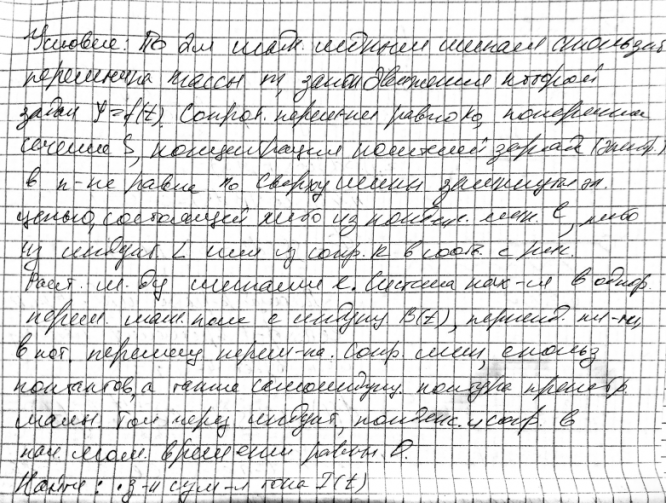 Условие: По 2м глад. медным шинам скользит
перемычка массы m, закон движения которой
задан y=f(t). Сопрот. перемычки равно R0, поперечн
сечение S, концентрация носителей заряда (электр.)
в п-ке равна n0 Сверху шины замкнуты эл.
цепью, состоящей либо из конденс. емк. C, либо
из индукт. L или из сопр. R в соотв. с рис.
Расст. м-ду шинами l. Система нах-ся в однор.
перем магн. поле с индукц B(t), перпенд. пл-ти,
в кот. перемещ перем-ка. Сопр. шин, скольз
контактов, а также самоиндукц. контура пренебр
малы. Ток через индукт, конденс. и сопр. в
нач. мом. времени равны 0.
Найти: з-н сум-л тока I(t)